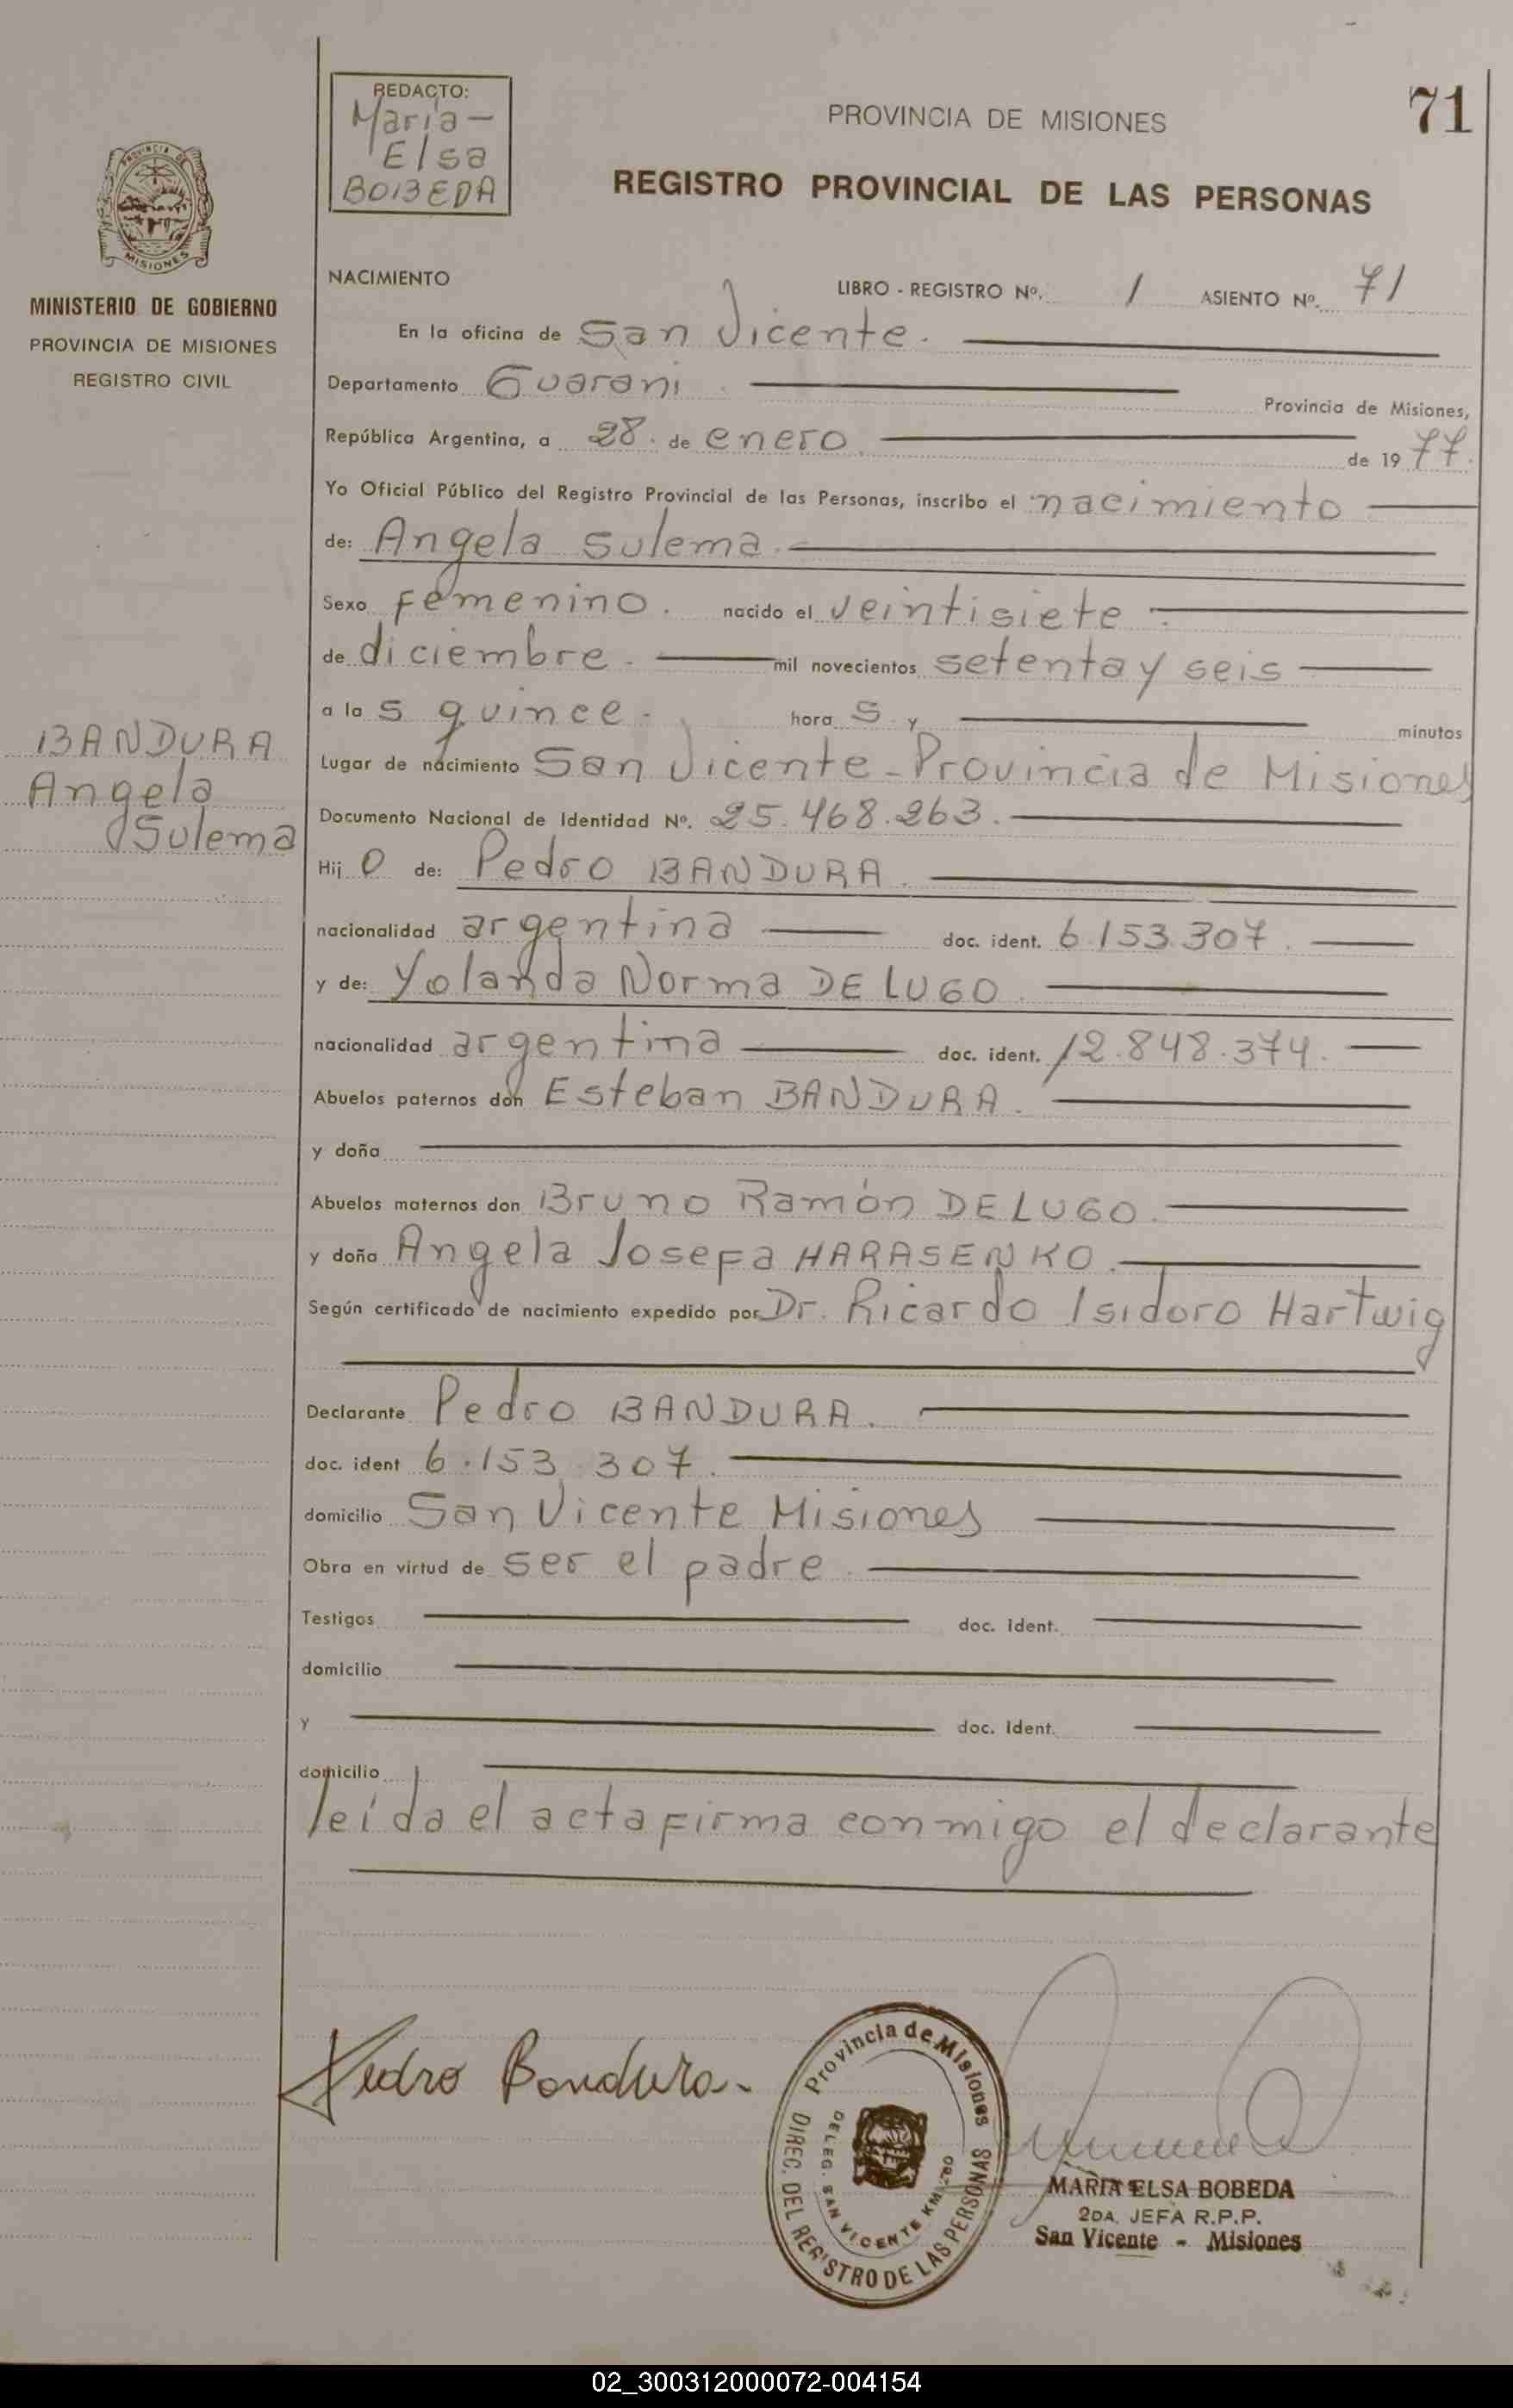 REDACTO:
Maria-
Elsa
BOBEDA
PROVINCIA DE MISIONES
71
REGISTRO PROVINCIAL DE LAS PERSONAS
PROVINCIA DE
MISIONES
MINISTERIO DE GOBIERNO
PROVINCIA DE MISIONES
REGISTRO CIVIL
NACIMIENTO
LIBRO - REGISTRO Nº. 1 ASIENTO Nº. 71
En la oficina de San Vicente.
Departamento Guarani. Provincia de Misiones,
República Argentina, a 28. de enero de 1977.
Yo Oficial Público del Registro Provincial de las Personas, inscribo el nacimiento
de: Angela Sulema.
Sexo femenino. nacido el veintisiete.
de diciembre. mil novecientos setenta y seis
a las quince. horas y minutos
Lugar de nacimiento San Vicente-Provincia de Misiones
BANDURA
Angela
Sulema
Documento Nacional de Identidad Nº. 25.468.263.
Hijo de: Pedro BANDURA.
nacionalidad argentina doc. ident. 6.153.307.
y de: Yolanda Norma DELUGO.
nacionalidad argentina doc. ident. 12.848.374.
Abuelos paternos don Esteban BANDURA.
y doña
Abuelos maternos don Bruno Ramón DELUGO.
y doña Angela Josefa HARASENKO.
Según certificado de nacimiento expedido por Dr. Ricardo Isidoro Hartwig
Declarante Pedro BANDURA.
doc. ident 6.153.307.
domicilio San Vicente Misiones
Obra en virtud de ser el padre.
Testigos doc. ident.
domicilio
y doc. ident.
domicilio
leída el acta firma conmigo el declarante
Pedro Bandura-
Provincia de Misiones
DIREC. DEL REGISTRO DE LAS PERSONAS
DELEG. SAN VICENTE KM. 260
MARIA ELSA BOBEDA
2DA. JEFA R.P.P.
San Vicente - Misiones
02_300312000072-004154